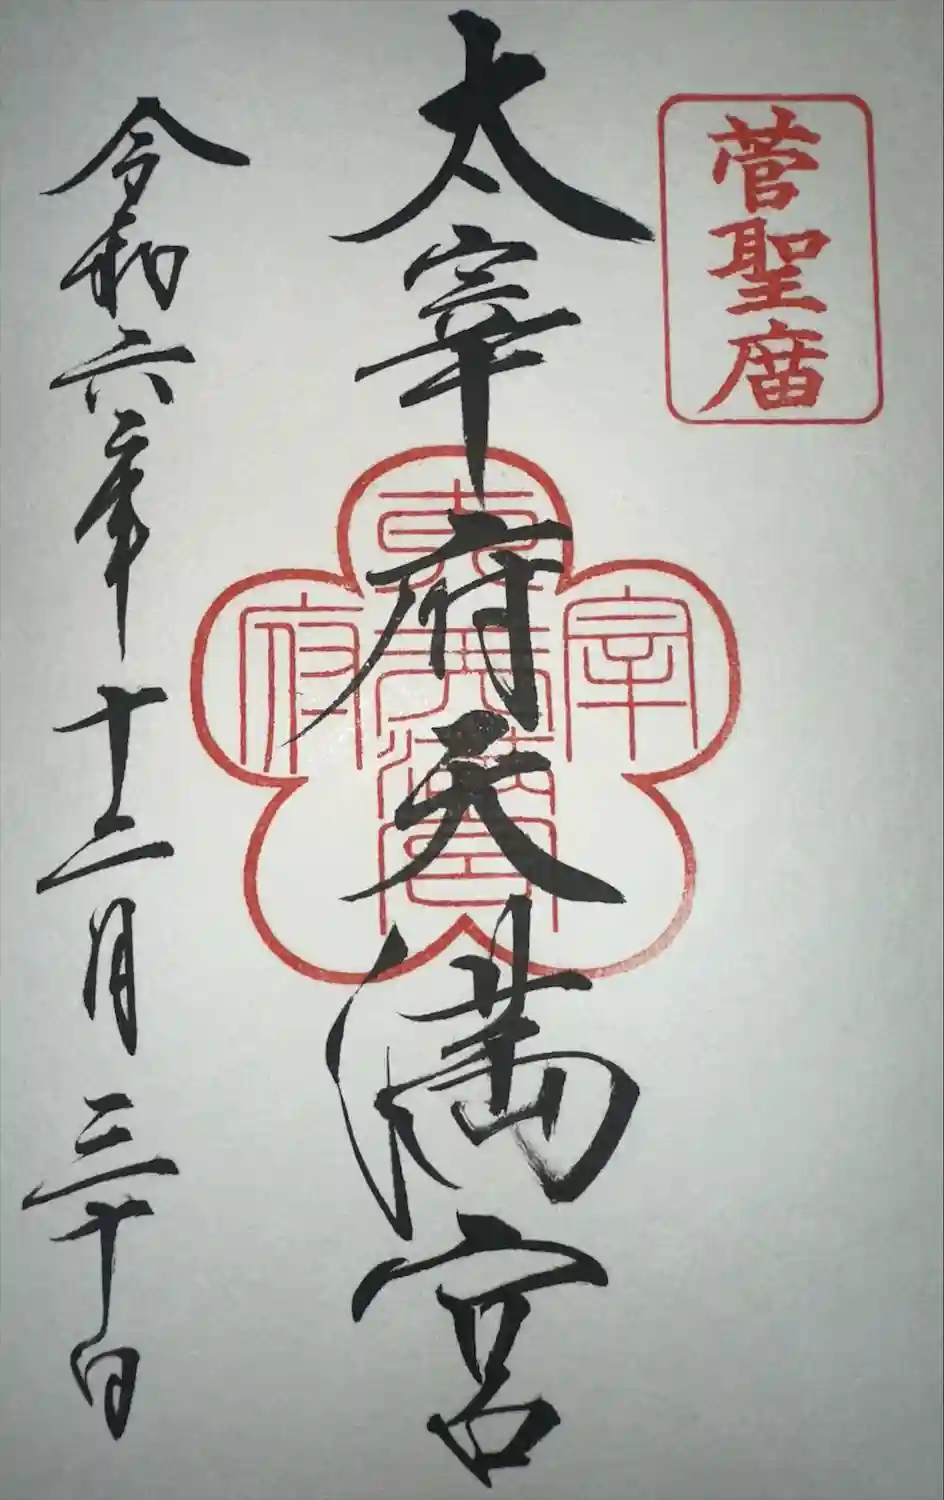 菅聖庿
太宰府天満宮
宰
府
天満宮
令和六年十二月三十日